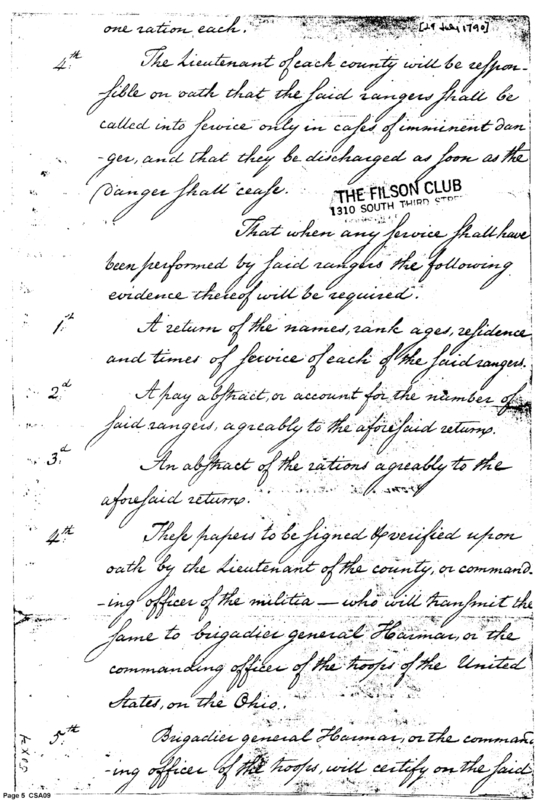 one ration each.
[29 July 1790]
4th. The Lieutenant of each county will be respon-
sible on oath that the said rangers shall be
called into service only in cases of imminent dan
-ger, and that they be discharged as soon as the
danger shall cease.
THE FILSON CLUB
1310 SOUTH THIRD STREE
That when any service shall have
been performed by said rangers the following
evidence thereof will be required.
1st. A return of the names, rank ages, residence
and times of service of each of the said rangers.
2d. A pay abstract, or account for the number of
said rangers, agreably to the aforesaid return.
3d. An abstract of the rations agreably to the
aforesaid return.
4th. These papers to be signed & verified upon
oath by the Lieutenant of the county, or command-
-ing officer of the militia — who will transmit the
same to brigadier general Harmar, or the
commanding officer of the troops of the United
States, on the Ohio.
5th. Brigadier general Harmar, or the command
-ing officer of the troops, will certify on the said
Page 5 CSA09